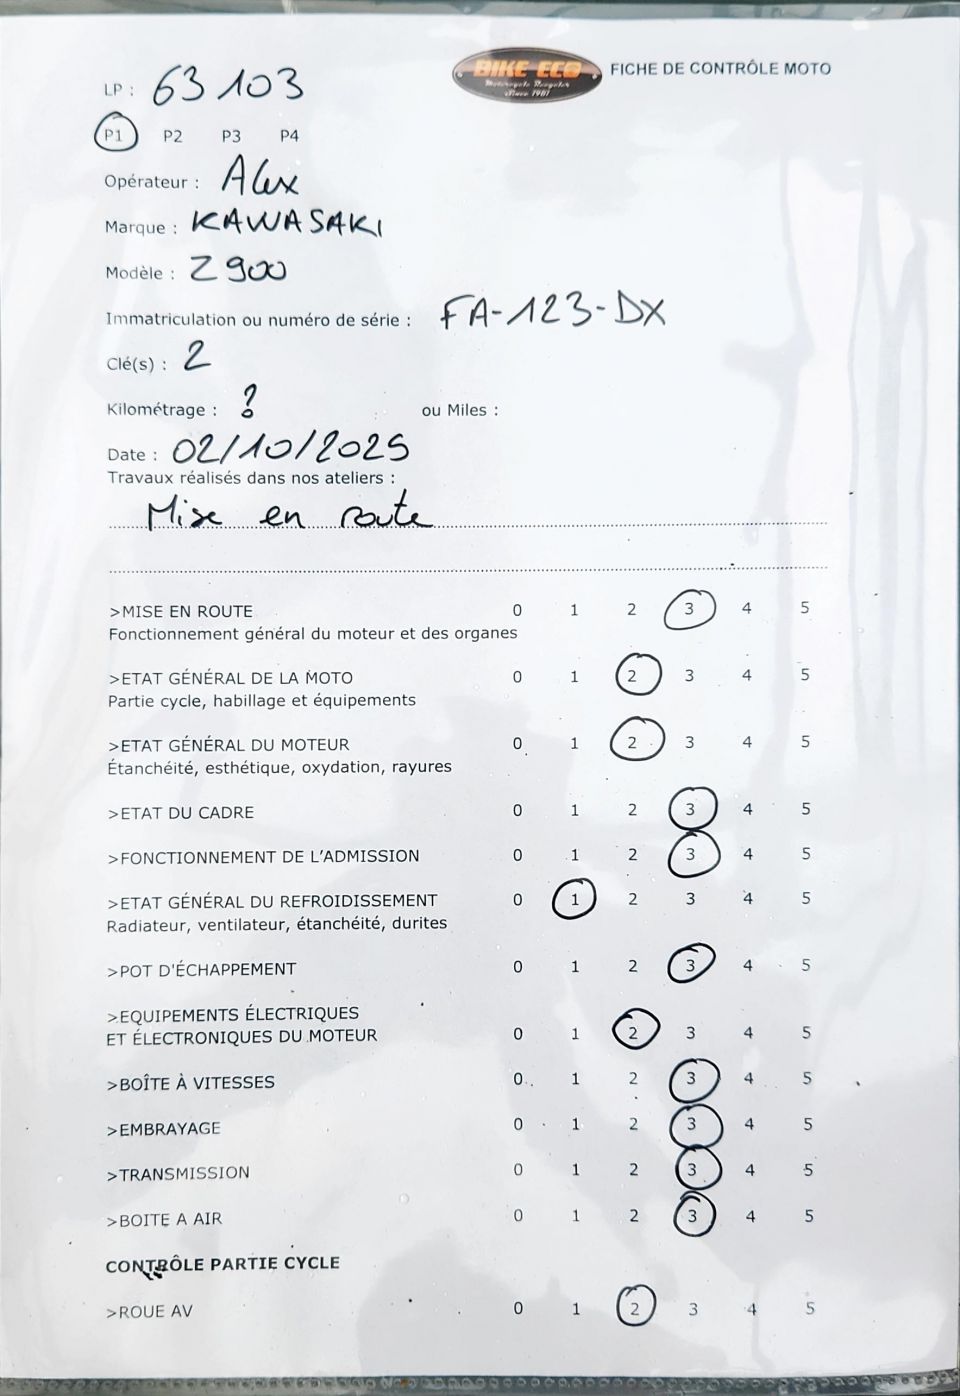 LP : 63103
BIKE ECO
Motorcycle Recycler
Since 1987
FICHE DE CONTRÔLE MOTO
P1 P2 P3 P4
Opérateur : Alex
Marque : KAWASAKI
Modèle : Z900
Immatriculation ou numéro de série : FA-123-DX
Clé(s) : 2
Kilométrage : ? ou Miles :
Date : 02/10/2025
Travaux réalisés dans nos ateliers :
Mise en route
>MISE EN ROUTE 0 1 2 3 4 5
Fonctionnement général du moteur et des organes
>ETAT GÉNÉRAL DE LA MOTO 0 1 2 3 4 5
Partie cycle, habillage et équipements
>ETAT GÉNÉRAL DU MOTEUR 0 1 2 3 4 5
Étanchéité, esthétique, oxydation, rayures
>ETAT DU CADRE 0 1 2 3 4 5
>FONCTIONNEMENT DE L'ADMISSION 0 1 2 3 4 5
>ETAT GÉNÉRAL DU REFROIDISSEMENT 0 1 2 3 4 5
Radiateur, ventilateur, étanchéité, durites
>POT D'ÉCHAPPEMENT 0 1 2 3 4 5
>EQUIPEMENTS ÉLECTRIQUES
ET ÉLECTRONIQUES DU MOTEUR 0 1 2 3 4 5
>BOÎTE À VITESSES 0 1 2 3 4 5
>EMBRAYAGE 0 1 2 3 4 5
>TRANSMISSION 0 1 2 3 4 5
>BOITE A AIR 0 1 2 3 4 5
CONTRÔLE PARTIE CYCLE
>ROUE AV 0 1 2 3 4 5